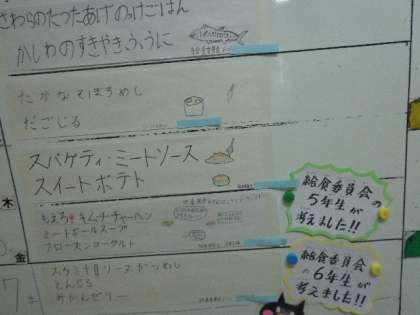 さわらのたつたあげのっけごはん
かしわのすきやきふうに
たかなそぼろめし
だごじる
スパゲティ・ミートソース
スイートポテト
木
もえろ キムチチャーハン
ミートボールスープ
フローズンヨーグルト
金
とんじる
みかんゼリー
給食委員会の
5年生が
考えました!!
給食委員会の
6年生が
考えました!!